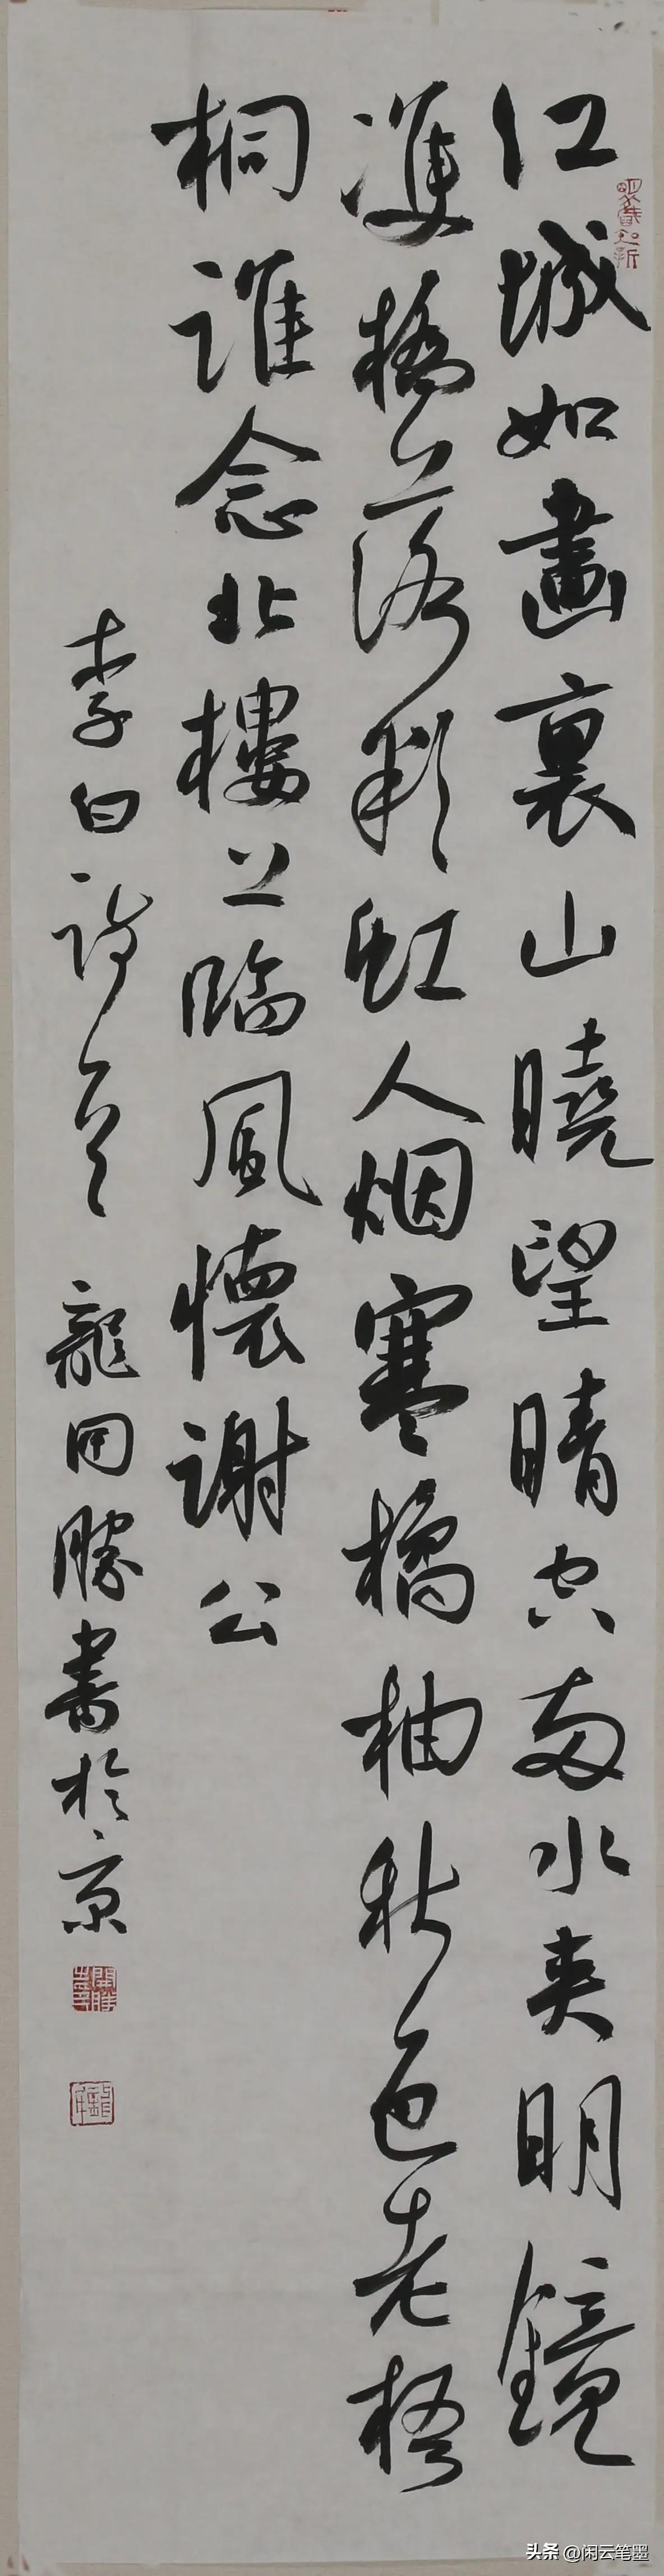 江城如畫裏山曉望晴空兩水夾明鏡
雙橋落彩虹人烟寒橘柚秋色老梧
桐誰念北樓上臨風懷謝公
李白詩一首 龍開勝書於京
头条 @闲云笔墨